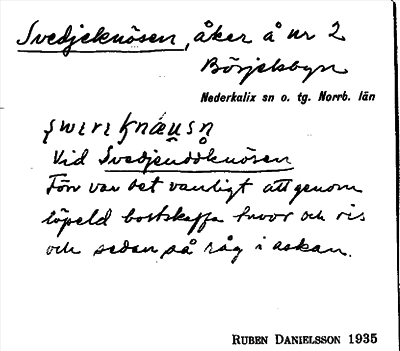 Svedjeknösen, åker å nr 2
Börjelsbyn
Nederkalix sn o. tg. Norrb. län
Vid Svedjeuddknösen
Förr var det vanligt att genom
löpeld bortskaffa snår och ris
och sedan så råg i askan.
RUBEN DANIELSSON 1935